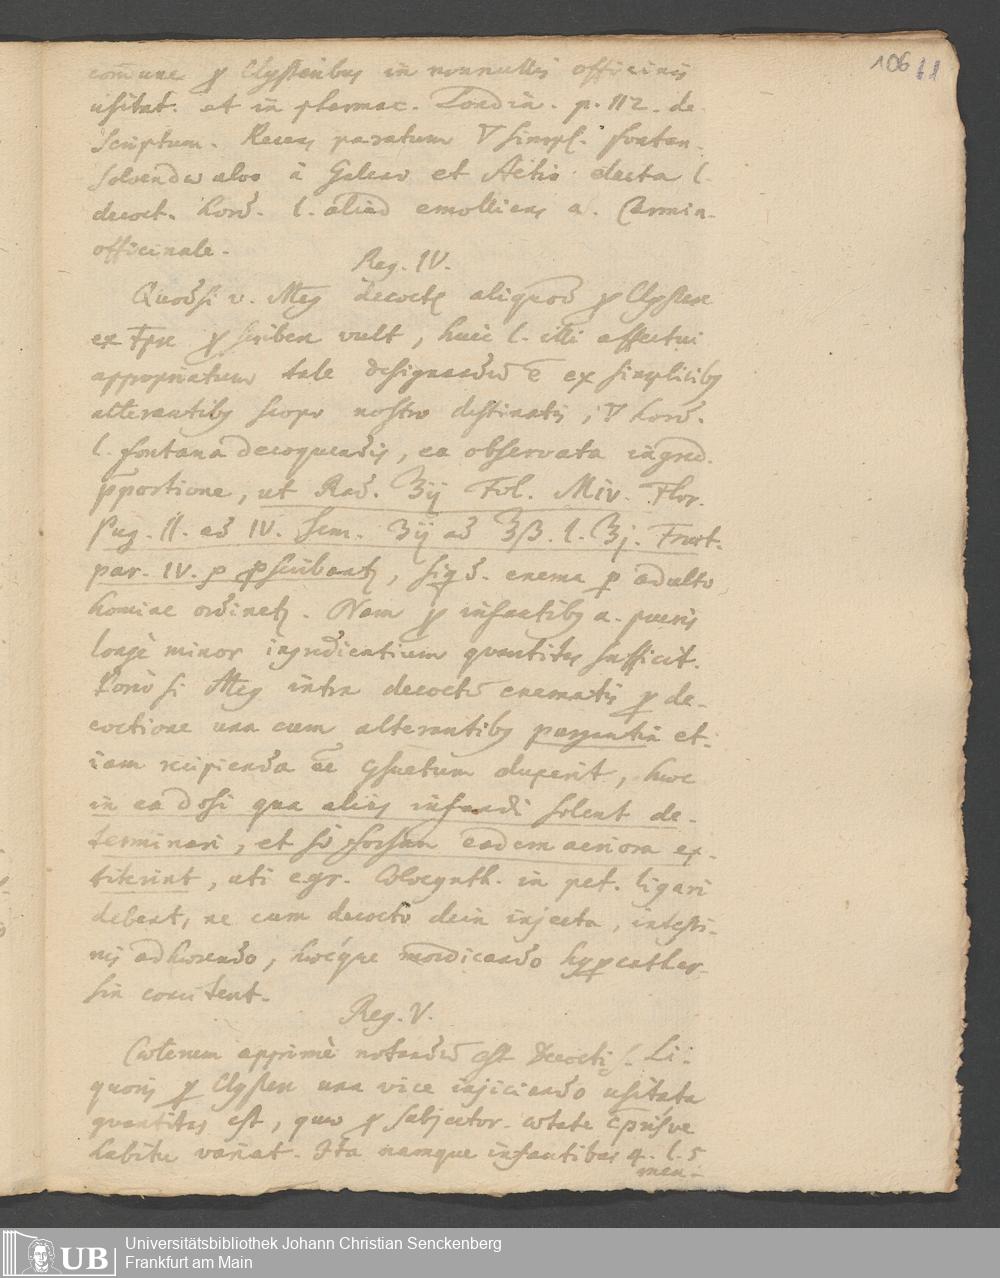 106 11
com̄une ꝑ Clysteribus in nonnullis officinis
usitat. et in pharmac. Londin. p. 112. de-
scriptum. Recens paratum ▽ simpl. fontan.
solvendo aloe à Galeno et Aetio dicta l.
decoct. hord. l. aliud emolliens a. Carmin.
officinale.
Reg. IV.
Quodsi v. Meg decoctū aliquod ꝑ Clystere
ex tpe ꝑscribere vult, huic l. illi affectui
appropriatum tale designandū ē ex simplicibq
alterantibq scopo nostro destinatis, ▽ hord.
l. fontana decoquendis, ea observata ingred.
ꝓportione, ut Rad. ℥ij Fol. Miv. Flor.
Pug. II. ad IV. Sem. ʒij ad ℥ß. l. ℥j. Fruct.
par. IV. ꝑscribantr, siqd. enema ꝑ adulto
homine ordinetr. Nam ꝑ infantibq a. pueris
longè minor ingredientium quantitas sufficit.
Porrò si Meg intra decoctū enematis ꝑ de-
coctione una cum alterantibq purgantia et-
iam recipienda ee ꝯsuetum duxerit, hoc
in ea dosi qua aliis infundi solent de-
terminari, et si forsan eadem acriora ex-
titerint, uti e.gr. Colocynth. in pet. ligari
debent, ne cum decocto dein injecta, intesti-
nis adhærendo, hocque mordicando hypcathar-
sin concitent.
Reg. V.
Cæterum apprimè notandū est Decocti l. Li-
quoris ꝑ Clystere una vice injiciendo usitata
quantitas est, quæ ꝑ subjector. ætate cprisve
habitu variat. Ita namque infantibus 4. l. 5
men-
Universitätsbibliothek Johann Christian Senckenberg
Frankfurt am Main
UB